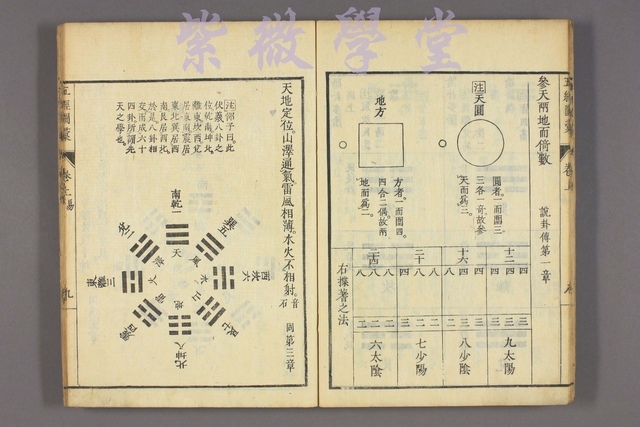 紫微學堂
參天兩地而倚數
說卦傳第一章
注天圓
圓者一而圍三
三各一奇故參
天而爲三
地方
方者一而圍四
四合二偶故兩
地而爲二
十二
四 四 四
三
九太陽
十六
四 四 八
八少陰
二十
四 八 八
七少陽
八 八 八
六太陰
右揲蓍之法
天地定位山澤通氣雷風相薄水火不相射
音石
同第三章
注邵子曰此
伏羲八卦之
位乾南坤北
離東坎西兌
居東南震居
東北巽居西
南艮居西北
於是八卦相
交而成六十
四卦所謂先
天之學也
南乾一
天
巽五
風
西坎六
水
艮七
山
北坤八
地
雷
火
澤